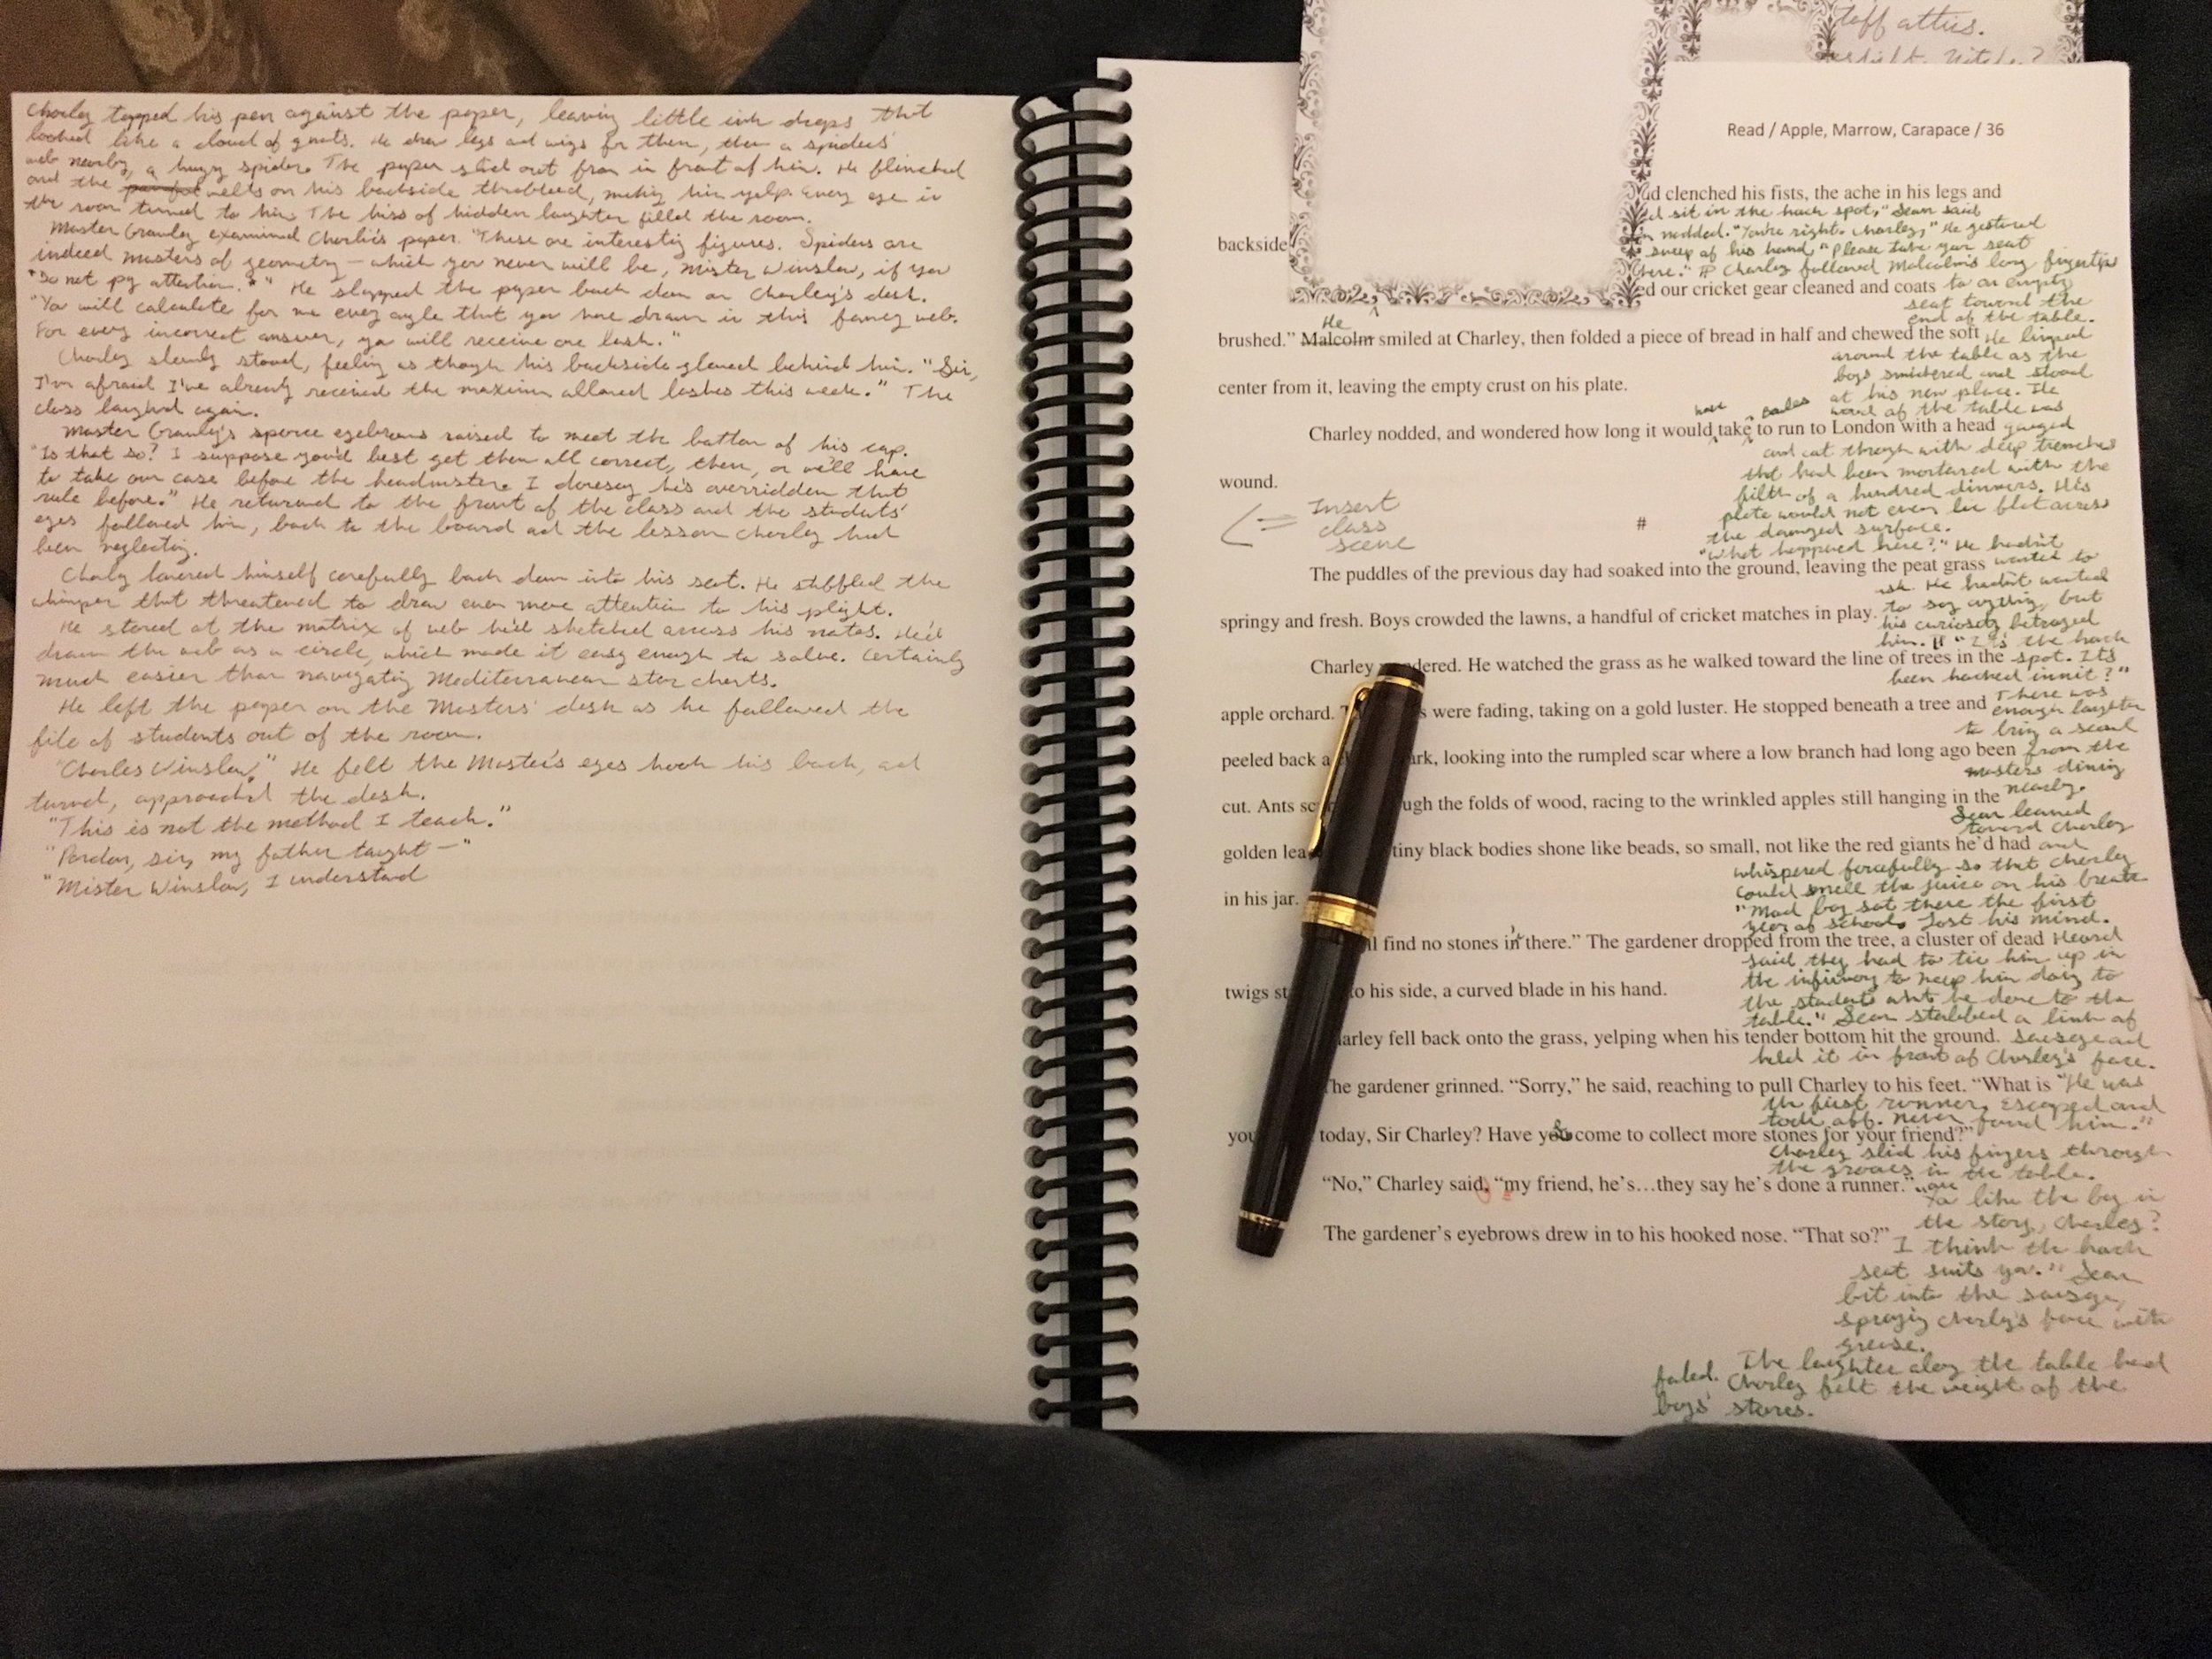 Charley tapped his pen against the paper, leaving little ink drops that
looked like a cloud of gnats. He drew legs and wigs for them, then a spiders'
web nearby, a hugry spider. The paper slid out from in front of him. He flinched
and the painful welts on his backside throbbed, making him yelp. Every eye in
the room turned to him. The hiss of hidden laughter filled the room.
Master Grawley examined Charlie's paper. "These are interestig figures. Spiders are
indeed masters of geometry — which you never will be, Mister Winslow, if you
do not pay attention." He slapped the paper back down on Charley's desk.
"You will calculate for me every angle that you have drawn in this fancy web.
For every incorrect answer, you will receive one lash."
Charley slowly stood, feeling as though his backside glowed behind him. "Sir,
I'm afraid I've already received the maximum allowed lashes this week." The
class laughed again.
Master Grawley's sparce eyebrows raised to meet the bottom of his cap.
"Is that so? I suppose you'd best get them all correct, then, or we'll have
to take our case before the headmaster. I daresay he's overridden that
rule before." He returned to the front of the class and the students'
eyes followed him, back to the board and the lesson Charley had
been neglecting.
Charley lowered himself carefully back down into his seat. He stiffled the
whimper that threatened to draw even more attention to his plight.
He stared at the matrix of web he'd sketched across his notes. He'd
drawn the web as a circle, which made it easy enough to solve. Certainly
much easier than navigating Mediterranean star charts.
He left the paper on the Masters' desk as he followed the
file of students out of the room.
"Charles Winslow." He felt the Master's eyes hook his back, and
turned, approached the desk.
"This is not the method I teach."
"Pardon, sir, my father taught —"
"Mister Winslow, I understand
toff attics.
Read / Apple, Marrow, Carapace / 36
d clenched his fists, the ache in his legs and
backside
d sit in the hack spot," Sean said
nodded. "You're right. Charley," He gestured
sweep of his hand. "Please take your seat
here." ¶ Charley followed Malcolm's long fingertip
ed our cricket gear cleaned and coats to an empty
seat toward the
end of the table.
He
brushed." Malcolm smiled at Charley, then folded a piece of bread in half and chewed the soft He limped
around the table as the
boys snickered and stood
center from it, leaving the empty crust on his plate.
at his new place. The
wood of the table was
have
Charley nodded, and wondered how long it would take to run to London with a head gouged
and cut through with deep trenches
that had been mortared with the
wound.
filth of a hundred dinners. His
plate would not even lie flat across
the damaged surface.
Insert
class
scene
#
"What happened here?" He hadn't
The puddles of the previous day had soaked into the ground, leaving the peat grass wanted to
ask. He hadn't wanted
to say anything, but
springy and fresh. Boys crowded the lawns, a handful of cricket matches in play. his curiosity betrayed
him. ¶ "I's the hack
Charley dered. He watched the grass as he walked toward the line of trees in the spot. Its
been hacked innit?"
There was
apple orchard. s were fading, taking on a gold luster. He stopped beneath a tree and enough laughter
to bring a scowl
peeled back a ark, looking into the rumpled scar where a low branch had long ago been from the
masters dining
cut. Ants sc ugh the folds of wood, racing to the wrinkled apples still hanging in the nearby.
Sean leaned
toward Charley
golden lea tiny black bodies shone like beads, so small, not like the red giants he'd had and
whispered forcefully so that Charley
could smell the juice on his breath.
in his jar.
"Mad boy sat there the first
year of school. Lost his mind.
ll find no stones in there." The gardener dropped from the tree, a cluster of dead Heard
said they had to tie him up in
the infirmary to keep him doing to
twigs st to his side, a curved blade in his hand.
the students what he done to the
table." Sean stabbed a link of
arley fell back onto the grass, yelping when his tender bottom hit the ground. sausage and
held it in front of Charley's face.
The gardener grinned. "Sorry," he said, reaching to pull Charley to his feet. "What is "He was
the first runner. Escaped and
took off. Never found him."
you today, Sir Charley? Have you come to collect more stones for your friend?"
Charley slid his fingers through
the grooves in the table.
"No," Charley said, "my friend, he's…they say he's done a runner."
"You like the boy in
the story, Charley?
The gardener's eyebrows drew in to his hooked nose. "That so?"
I think the hack
seat suits you." Sean
bit into the sausage,
spraying Charley's face with
grease.
The laughter along the table had
faded. Charley felt the weight of the
boys' stares.